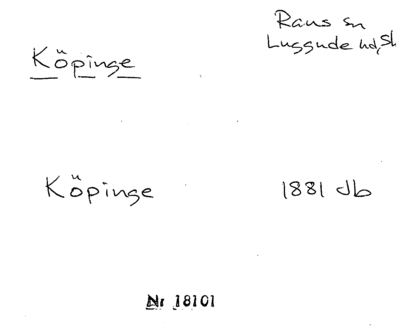 Rans sn
Luggude hd, Sk
Köpinge
Köpinge 1881 Jb
Nr 18101